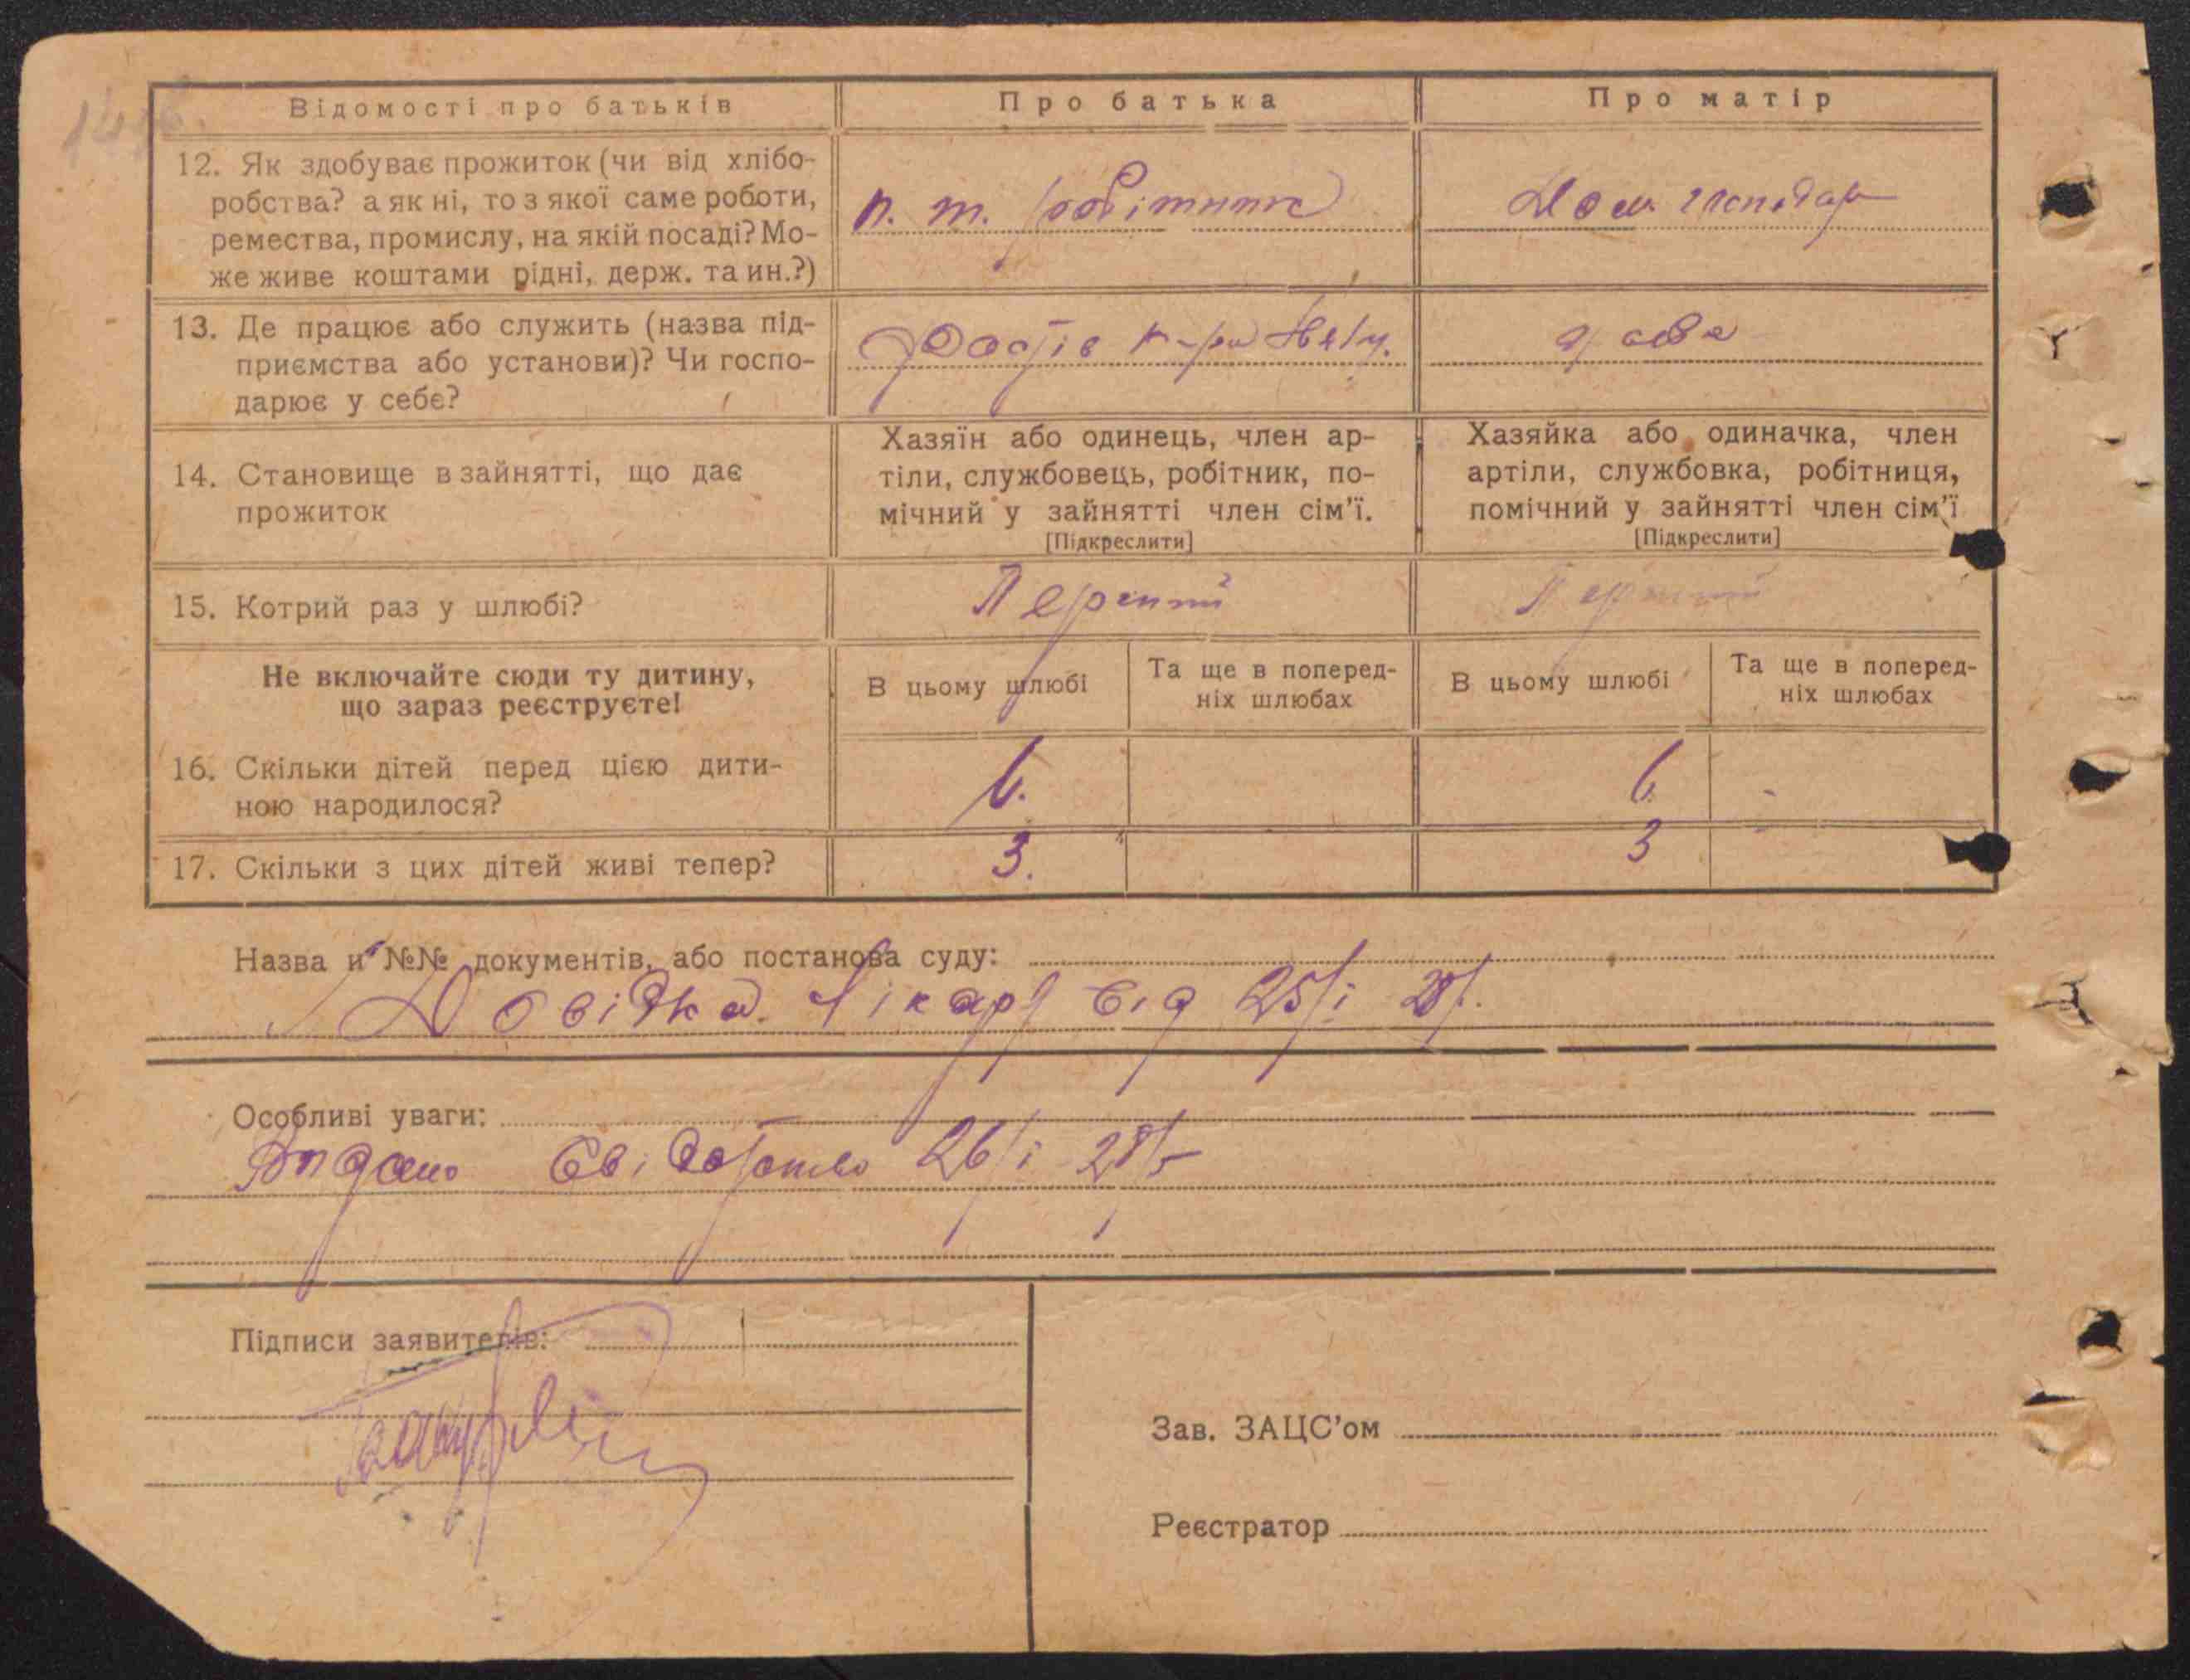 Відомості про батьків
Про батька
Про матір
12. Як здобуває прожиток (чи від хлібо-
робства? а як ні, то з якої саме роботи,
ремества, промислу, на якій посаді? Мо-
же живе коштами рідні, держ. та ин.?)
п. т. робітник
Дом. господар
13. Де працює або служить (назва під-
приємства або установи)? Чи госпо-
дарює у себе?
14. Становище в зайнятті, що дає
прожиток
Хазяїн або одинець, член ар-
тіли, службовець, робітник, по-
мічний у зайнятті член сім'ї.
[Підкреслити]
Хазяйка або одиначка, член
артіли, службовка, робітниця,
помічний у зайнятті член сім'ї
[Підкреслити]
15. Котрий раз у шлюбі?
Перший
Перший
Не включайте сюди ту дитину,
що зараз реєструєте!
В цьому шлюбі
Та ще в поперед-
ніх шлюбах
В цьому шлюбі
Та ще в поперед-
ніх шлюбах
16. Скільки дітей перед цією дити-
ною народилося?
6.
6.
-
17. Скільки з цих дітей живі тепер?
3.
3
Назва и №№ документів, або постанова суду:
Довідка Лікаря від 25/і 28р.
Особливі уваги:
Видано Свідоцтво 26/і 28р
Підписи заявителів:
Зав. ЗАЦС'ом
Реєстратор